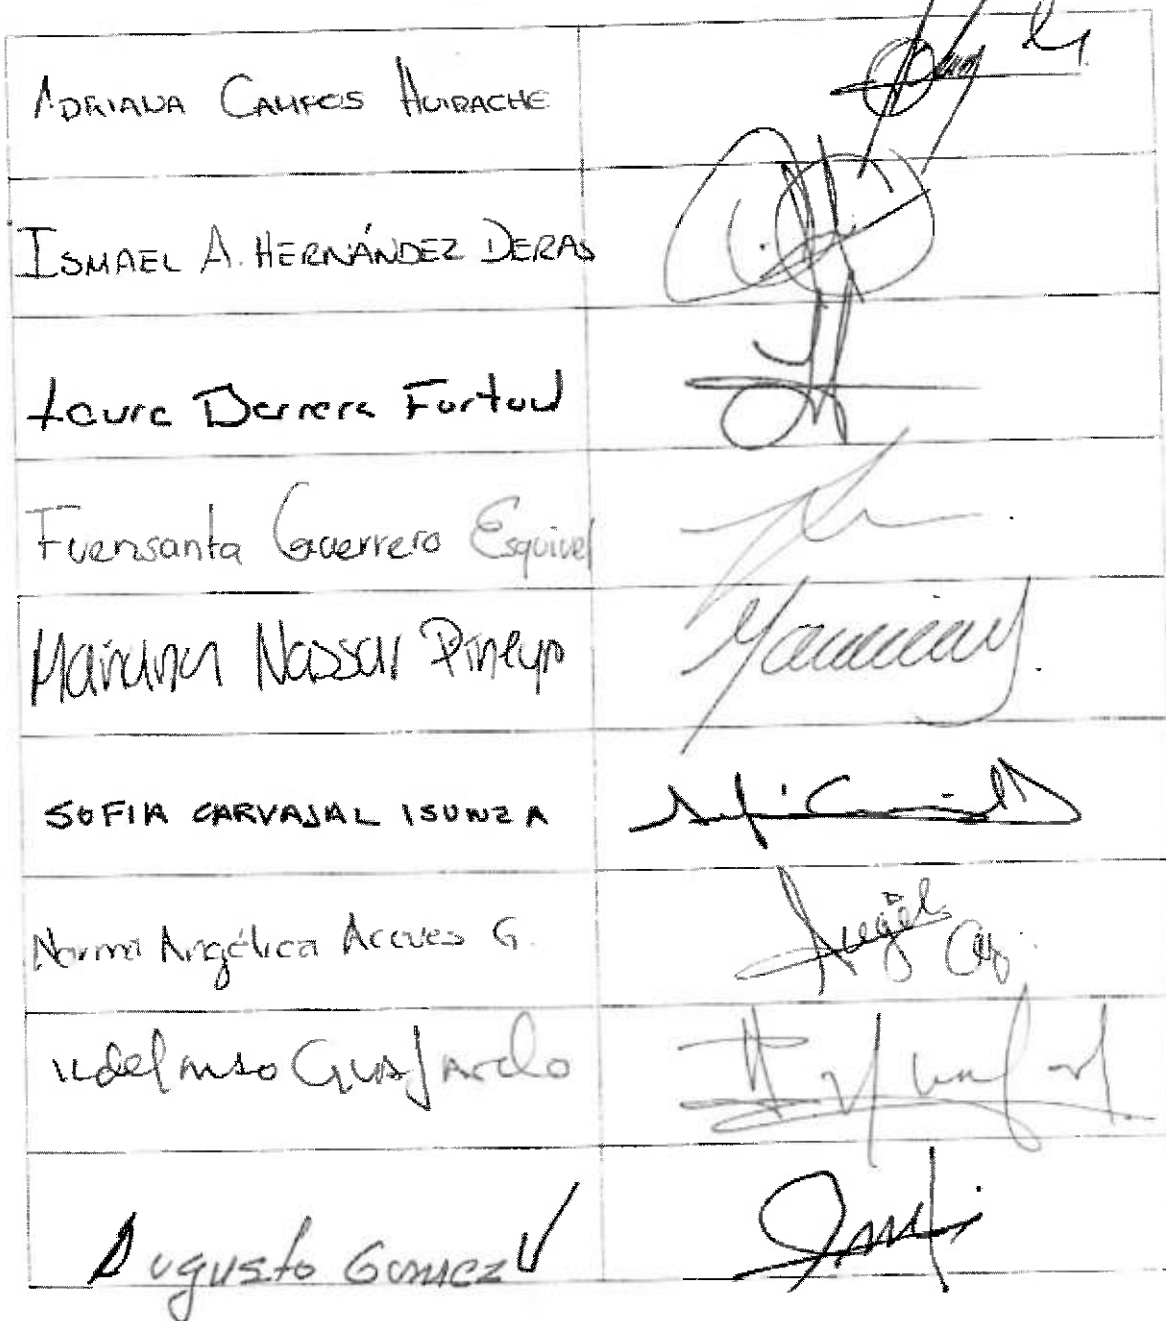 ADRIANA CAMPOS HUIRACHE
ISMAEL A. HERNÁNDEZ DERAS
Laura Barrera Fortoul
Fuensanta Guerrero Esquivel
Mariana Nassar Piñeyro
SOFIA CARVAJAL ISUNZA
Norma Angélica Aceves G.
Ildefonso Guajardo
Augusto Gomez V